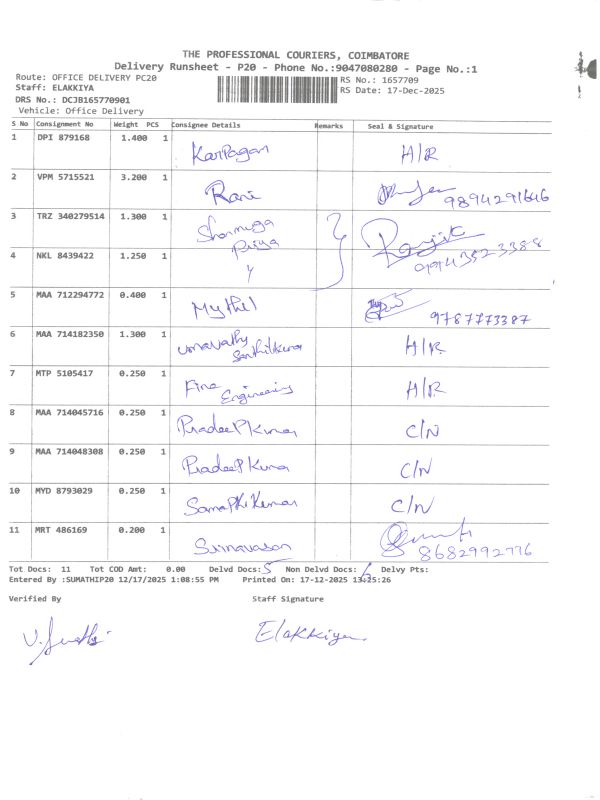 THE PROFESSIONAL COURIERS, COIMBATORE
Delivery Runsheet - P20 - Phone No.:9047080280 - Page No.:1
Route: OFFICE DELIVERY PC20 RS No.: 1657709
Staff: ELAKKIYA RS Date: 17-Dec-2025
DRS No.: DCJB165770901
Vehicle: Office Delivery
S No Consignment No Weight PCS Consignee Details Remarks Seal & Signature
1 DPI 879168 1.400 1 Karpagan H/R
2 VPM 5715521 3.200 1 Rani 9894291646
3 TRZ 340279514 1.300 1 Sharmiga Priya Ranjik
4 NKL 8439422 1.250 1 y
5 MAA 712294772 0.400 1 Mythil 9787773387
6 MAA 714182350 1.300 1 umavathy Senthilkumar H/R
7 MTP 5105417 0.250 1 Fine Engineering H/R
8 MAA 714045716 0.250 1 PradeePKumar C/N
9 MAA 714048308 0.250 1 PradeePKumar C/N
10 MYD 8793029 0.250 1 C/N
11 MRT 486169 0.200 1 Srinavasan 8682992776
Tot Docs: 11 Tot COD Amt: 0.00 Delvd Docs: 5 Non Delvd Docs: 6 Delvy Pts:
Entered By :SUMATHIP20 12/17/2025 1:08:55 PM Printed On: 17-12-2025 13:25:26
Verified By Staff Signature
Elakkiya